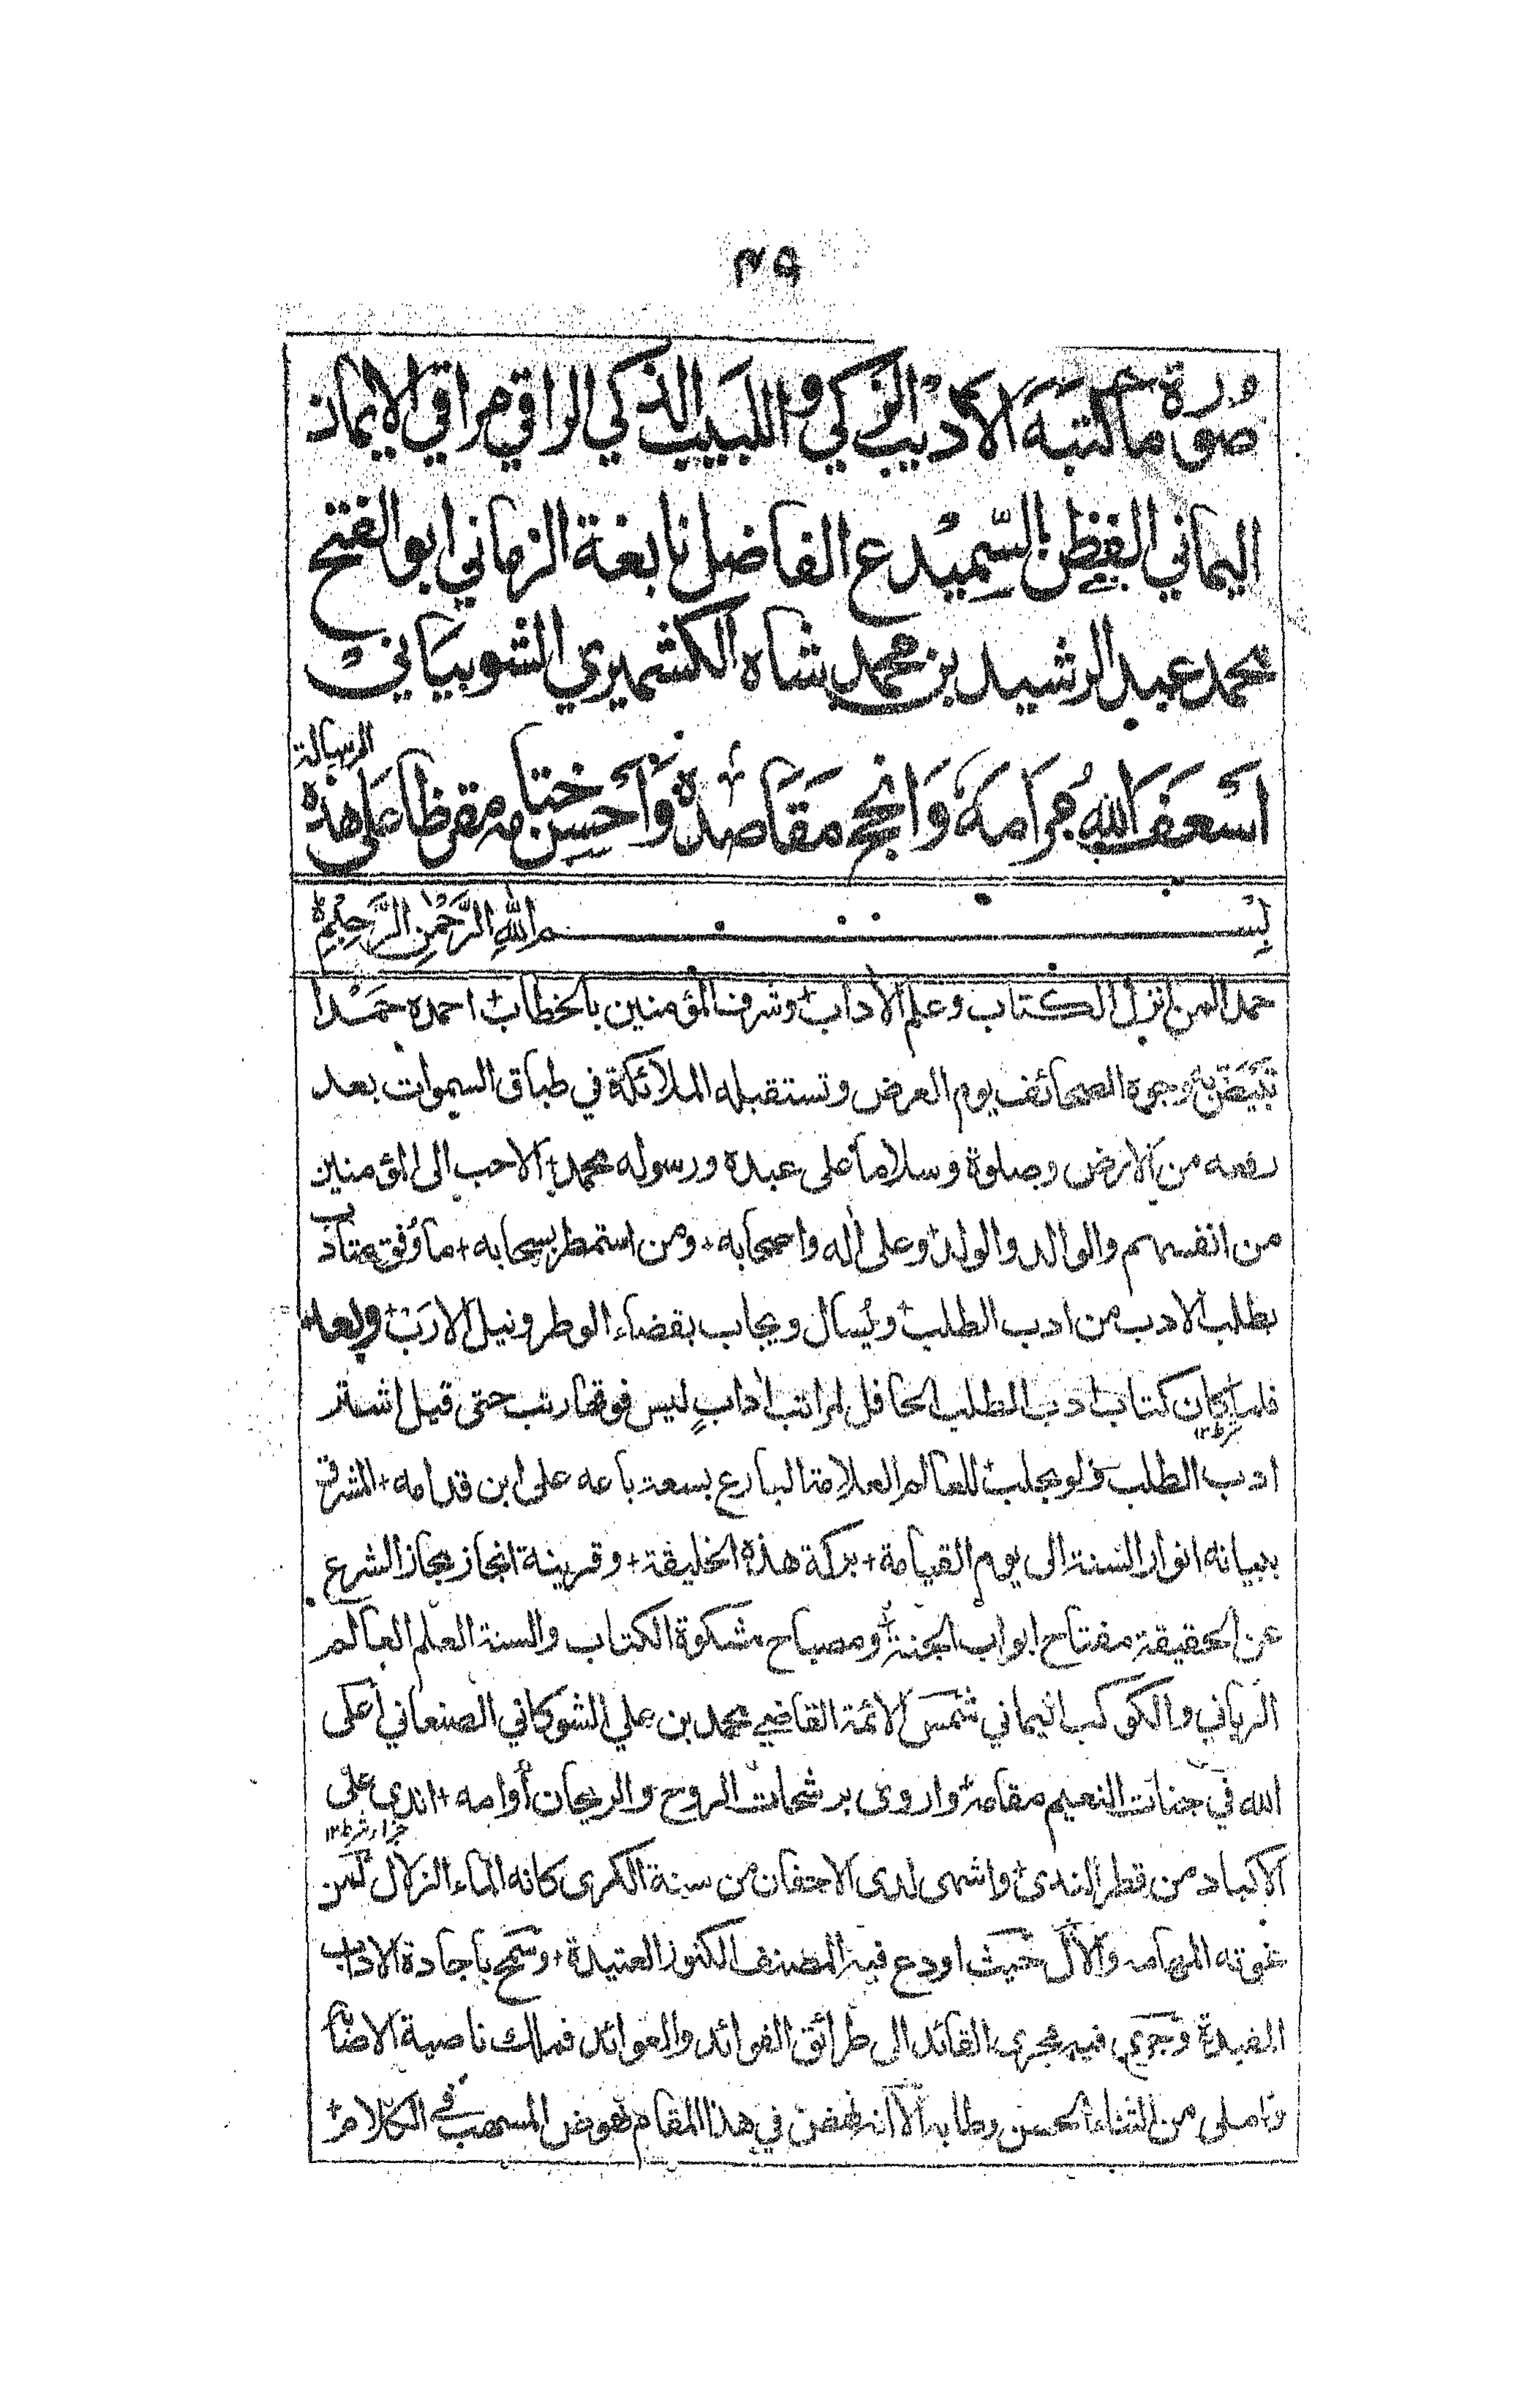 صورة ما كتبه الأديب الزكي و اللبيب الذكي الراقي مراقي الايمان
اليماني الفطن السميدع الفاضل نابغة الزماني ابو الفتح
محمد عبد الرشيد بن محمد شاه الكشميري الشوبياني
اَسْعَفَ اللهُ مَرامَهُ وَانجح مَقَاصِدهُ وَاَحسن ختامه مقرظا على هذه الرسالة
بِسْمِ اللهِ الرَّحْمٰنِ الرَّحِيْمِ
حمدا لمن انزل الكتاب وعلم الاداب وشرف المؤمنين بالخطاب احمده حمدا
تبيض به وجوه الصحائف يوم العرض وتستقبله الملائكة في طباق السموات بعد
رفعه من الارض وصلوة وسلاما على عبده ورسوله محمد الاحب الى المؤمنين
من انفسهم والوالد والولد وعلى اله واصحابه + ومن استمطر بسحابه + ما وُفق متادب
بطلب الادب من ادب الطلب ويُسأل ويجاب بقضاء الوطر ونيل الارَب وبعد
فلما كان كتاب ادب الطلب الحافل لمراتب اداب ليس فوقها رتب حتى قيل اشتر
ادب الطلب ولو بجلب للعالم العلامة البارع بسعة باعه على ابن قدامه + المشرق
ببيانه انوار السنة الى يوم القيامة + بركة هذه الخليقة + وقرينة انجاز مجاز الشرع
عن الحقيقة مفتاح ابواب الجنة ومصباح مشكوة الكتاب والسنة العلم العالم
الرباني والكوكب اليماني شمس الائمة القاضي محمد بن علي الشوكاني الصنعاني أعلى
الله في جنات النعيم مقامه واروى برشحات الروح والريحان أوامه + اندى على
الاكباد من قطر الندى واشهى لدى الاجفان من سنة الكرى كانه الماء الزلال لمن
غرته المهامه والآل حيث اودع فيه المصنف الكنوز العتيدة + وسمح باجادة الاداب
المفيدة وجرى فيه مجرى القائد الى طرائق الفوائد والعوائد فملك ناصية
واملى من الثناء الحسن وطابه الا انه نهض في هذا المقام نهوض المسهب في الكلام